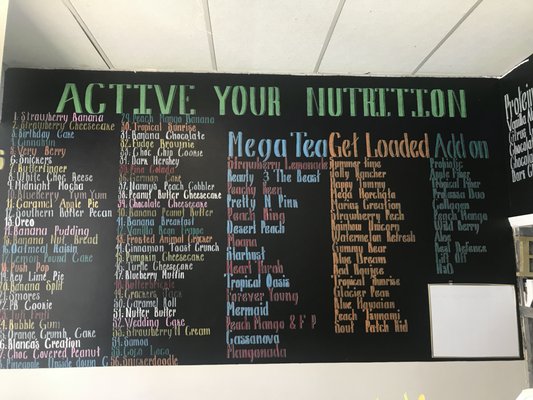 ACTIVE YOUR NUTRITION
1. Strawberry Banana
2. Strawberry Cheesecake
3. Birthday Cake
4. Cinnabun
5. Very Berry
6. Snickers
7. Butterfinger
8. White Choc Reese
9. Midnight Mocha
10. Blueberry Yum Yum
11. Caramel Apple Pie
12. Southern Butter Pecan
13. Oreo
14. Banana Pudding
15. Banana Nut Bread
16. Oatmeal Raisin
17. Lemon Pound Cake
18. Push Pop
19. Key Lime Pie
20. Banana Split
21. Smores
22. PB Cookie
23. Tutti Fruti
24. Bubble Gum
25. Orange Crunch Cake
26. Blanca's Creation
27. Choc Covered Peanut
28. Pineapple Upside down C
29. Peach Mango Banana
30. Tropical Sunrise
31. Banana Chocolate
32. Fudge Brownie
33. Choc Chip Cookie
34. Dark Hershey
35. Pina Colada
36. German Cake
37. Nanny's Peach Cobbler
38. Peanut Butter Cheesecake
39. Chocolate Cheesecake
40. Banana Peanut Butter
41. Banana Breakfast
42. Vanilla Bean Frappe
43. Frosted Animal Cracker
44. Cinnamon Toast Crunch
45. Pumpkin Cheesecake
46. Turtle Cheesecake
47. Blueberry Muffin
48. Butterbrickle
49. Crackers Jack
50. Caramel Loin
51. Nutter Butter
52. Wedding Cake
53. Strawberry N Cream
54. Samoa
55. Coco Loco
56. Snickerdoodle
Mega Tea
Strawberry Lemonade
Beauty & The Beast
Peach Queen
Pretty N Pink
Peach Ring
Desert Peach
Moana
Starburst
Heart Throb
Tropical Oasis
Forever Young
Mermaid
Peach Mango & F P
Cassanova
Mangonada
Get Loaded
Summer Time
Salty Johnny
Happy Tummy
Mega Horchata
Marias Creation
Strawberry Pech
Rainbow Unicorn
Watermelon Refresh
Gummy Bear
Blue Dream
Red Rouge
Tropical Sunrise
Glacier Peak
Blue Hawaii
Peach Tsunami
Sour Patch Kid
Add on
Probiotic
Apple Fiber
Tropical Fiber
Prolessa Duo
Collagen
Peach Mango
Wild Berry
Aloe
Best Defence
Lift Off
H30
Protein
Vanilla
Chocolate